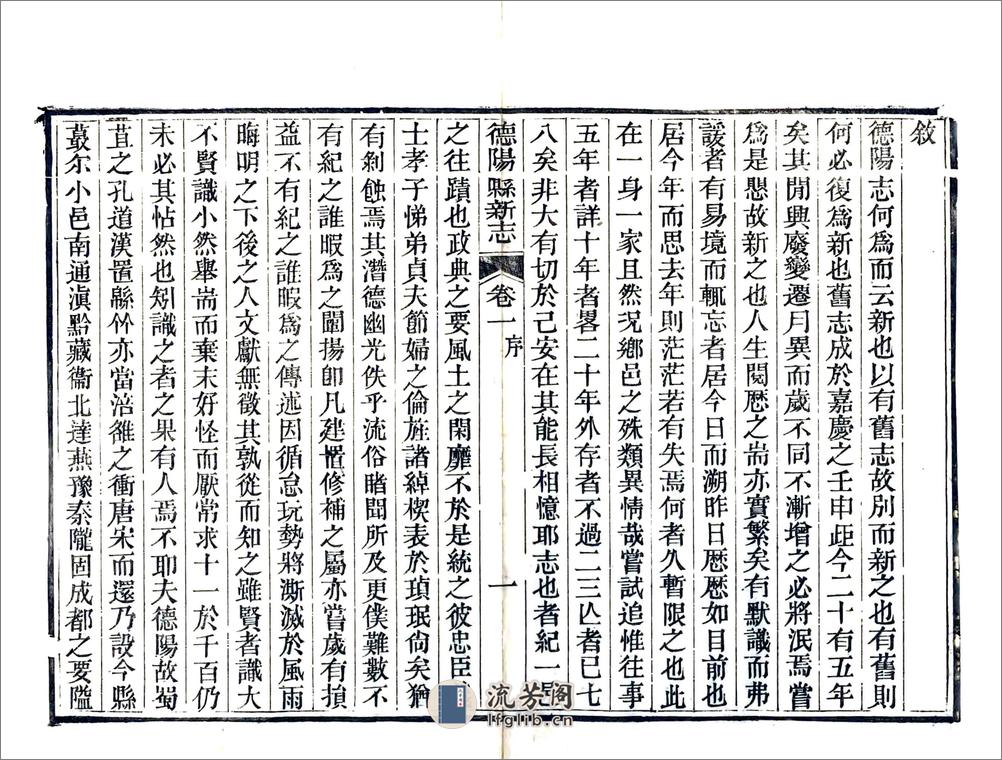 敘
德陽志何爲而云新也以有舊志故别而新之也有舊則
何必復爲新也舊志成於嘉慶之壬申歫今二十有五年
矣其閒興廢變遷月異而歲不同不漸增之必將泯焉嘗
爲是懇故新之也人生閱歷之耑亦實繁矣有默識而弗
諼者有易境而輒忘者居今日而溯昨日厯厯如目前也
居今年而思去年則茫茫若有失焉何者久暫限之也此
在一身一家且然况鄉邑之殊類異情哉嘗試追惟往事
五年者詳十年者畧二十年外存者不過二三亾者已七
八矣非大有切於己安在其能長相憶耶志也者紀一邑
德陽縣新志 卷一 序 一
之往蹟也政典之要風土之閑靡不於是統之彼忠臣
士孝子悌弟貞夫節婦之倫旌諸綽楔表於瑱珉尙矣猶
有剝蝕焉其潛德幽光佚乎流俗睹聞所及更僕難數不
有紀之誰暇爲之闡揚卽凡建置修補之屬亦嘗歲有損
益不有紀之誰暇爲之傳述因循怠玩勢將澌滅於風雨
晦明之下後之人文獻無徵其孰從而知之雖賢者識大
不賢識小然舉耑而棄末好怪而厭常求十一於千百仍
未必其帖然也矧識之者之果有人焉不耶夫德陽故蜀
苴之孔道漢置緜竹亦當涪雒之衝唐宋而還乃設今縣
蕞尔小邑南通滇黔藏衞北達燕豫秦隴固成都之要隘
流芳阁
lfglib.cn